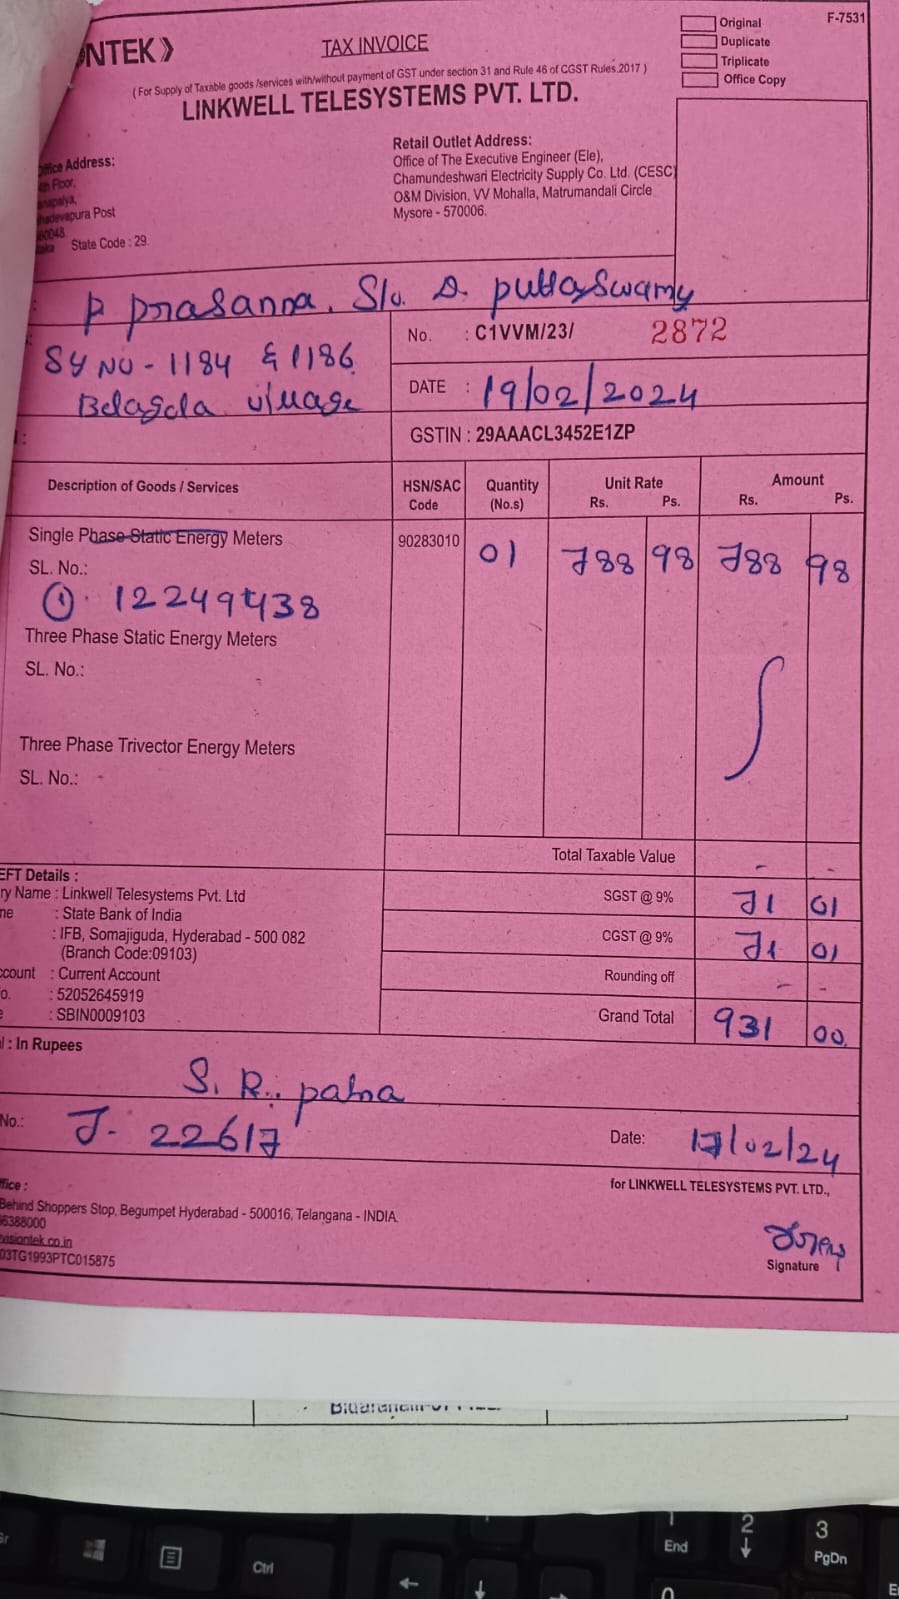 ONTEK》
TAX INVOICE
F-7531
Original
Duplicate
Triplicate
Office Copy
( For Supply of Taxable goods /services with/without payment of GST under section 31 and Rule 46 of CGST Rules.2017 )
LINKWELL TELESYSTEMS PVT. LTD.
ffice Address:
th Floor,
anapalya,
hadevapura Post
60048.
taka State Code : 29.
Retail Outlet Address:
Office of The Executive Engineer (Ele),
Chamundeshwari Electricity Supply Co. Ltd. (CESC)
O&M Division, VV Mohalla, Matrumandali Circle
Mysore - 570006.
P prasanna. S/o. D. puttaswamy
SY NO - 1184 & 1186
Belagola village
No. : C1VVM/23/ 2872
DATE : 19/02/2024
GSTIN : 29AAACL3452E1ZP
Description of Goods / Services HSN/SAC Code Quantity (No.s) Unit Rate Rs. Ps. Amount Rs. Ps.
Single Phase Static Energy Meters 90283010 01 788 98 788 98
SL. No.:
① 12249438
Three Phase Static Energy Meters
SL. No.:
Three Phase Trivector Energy Meters
SL. No.: -
Total Taxable Value - -
SGST @ 9% 71 01
CGST @ 9% 71 01
Rounding off - -
Grand Total 931 00
EFT Details :
ry Name : Linkwell Telesystems Pvt. Ltd
me : State Bank of India
: IFB, Somajiguda, Hyderabad - 500 082
(Branch Code:09103)
ccount : Current Account
o. : 52052645919
e : SBIN0009103
l : In Rupees
S. R.
No.: J- 22617
Date: 17/02/24
ffice :
Behind Shoppers Stop, Begumpet Hyderabad - 500016, Telangana - INDIA.
6388000
visiontek.co.in
03TG1993PTC015875
for LINKWELL TELESYSTEMS PVT. LTD.,
Signature
1
End
2
3
PgDn
Ctrl
0